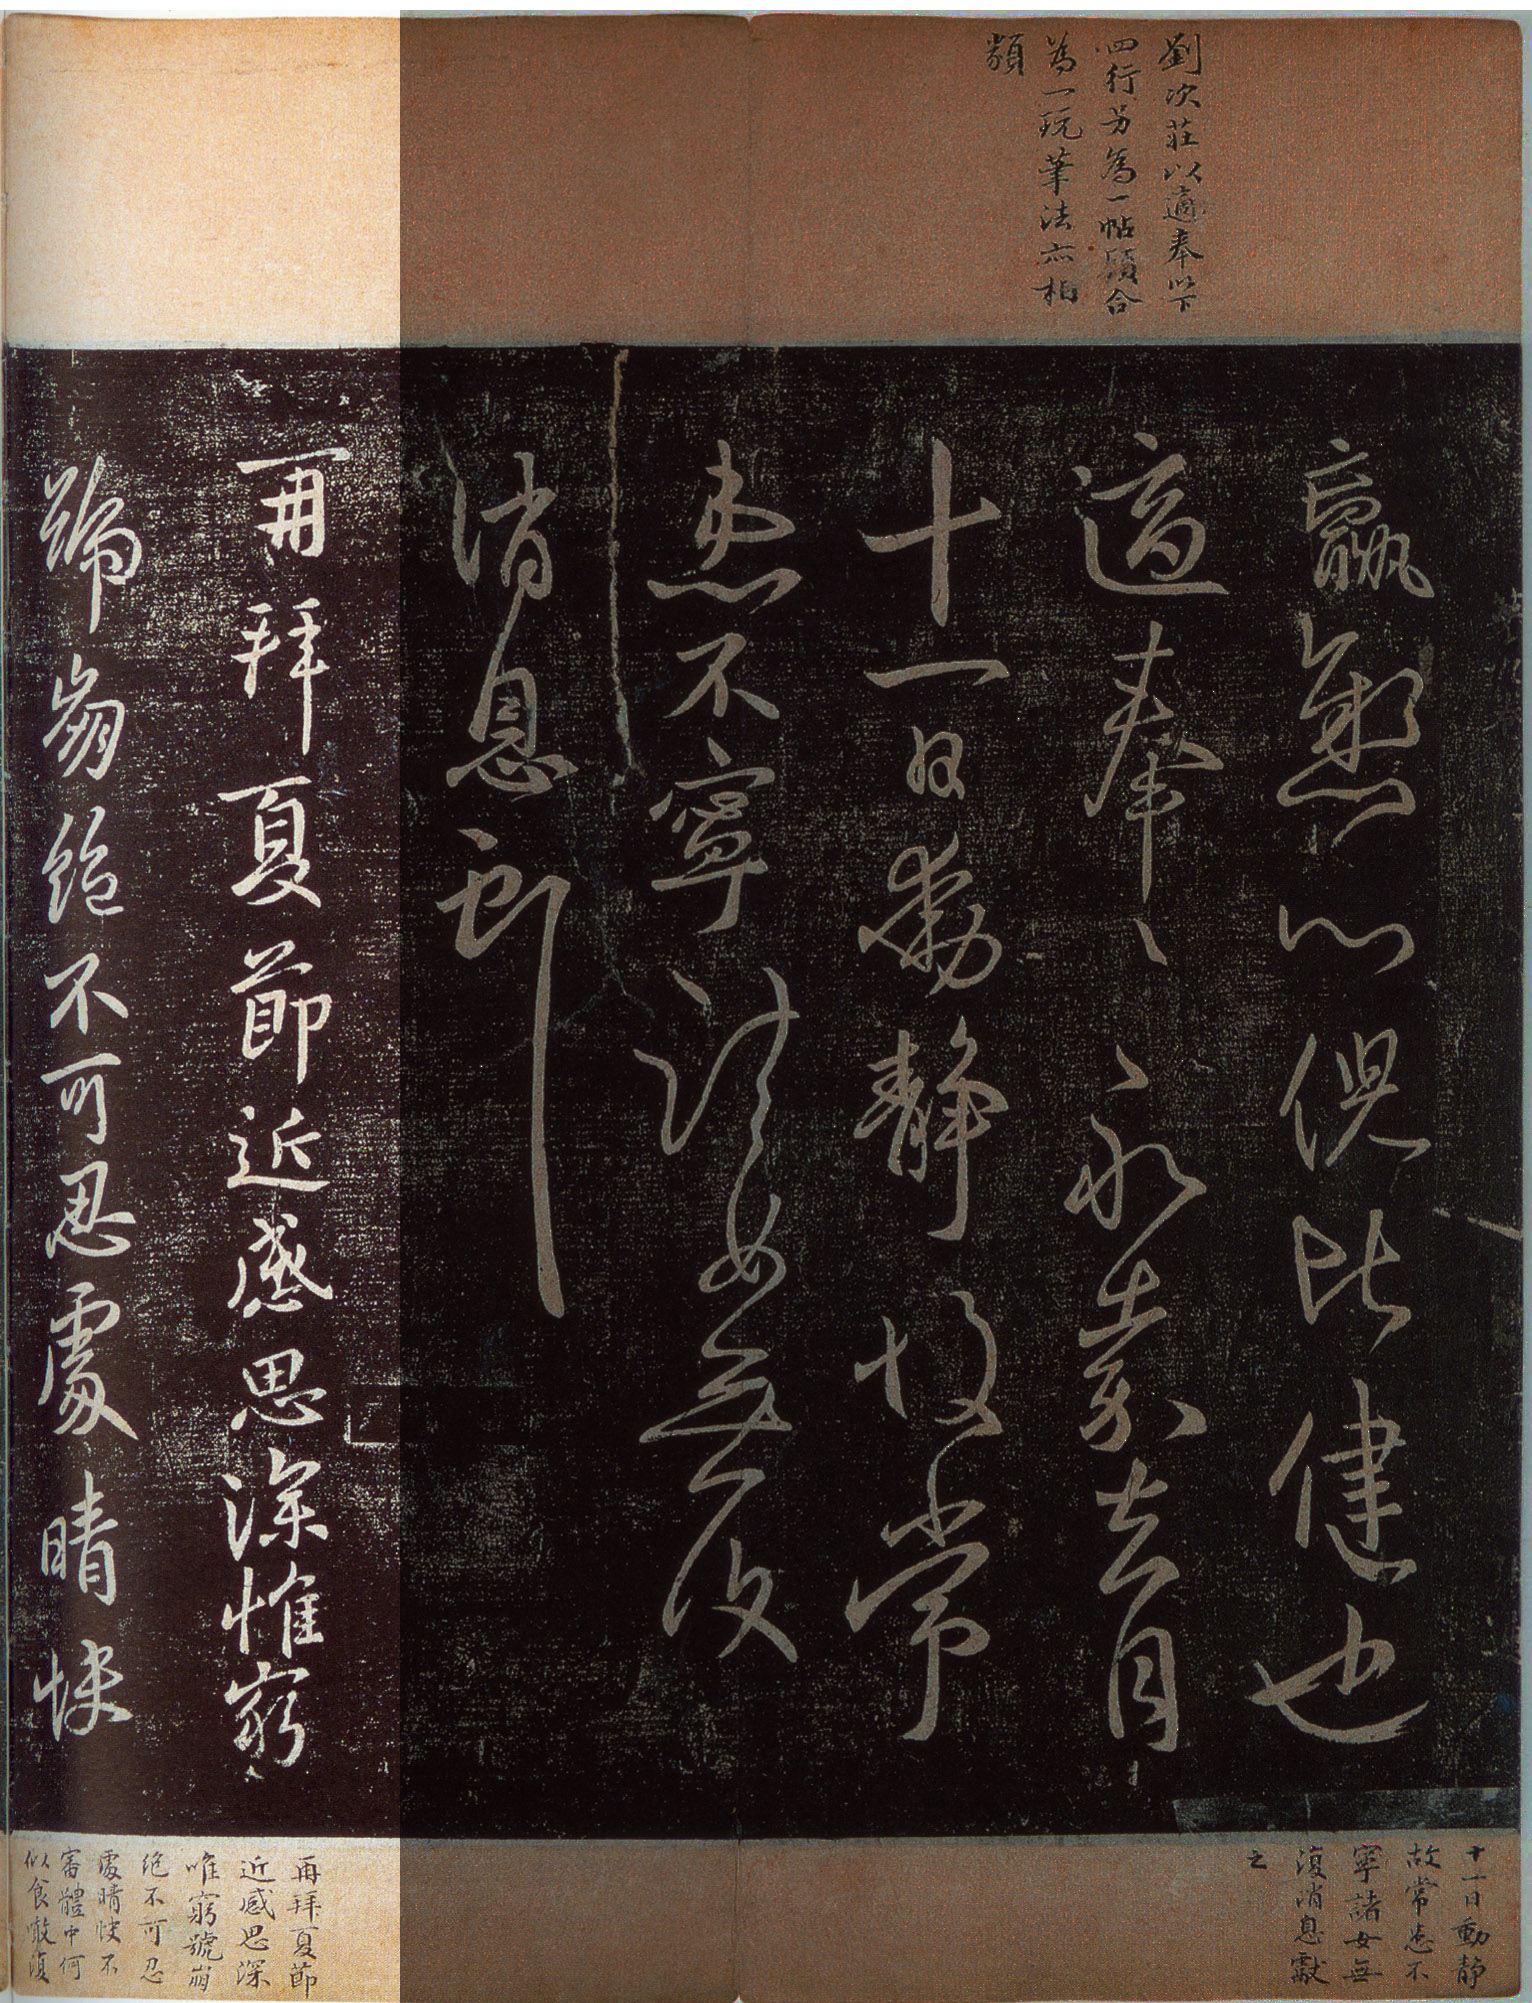 劉次莊以適奉以下
四行另為一帖須合
為一玩筆法亦相
類
羸心俱健也
適奉〻永嘉去月
十一日動靜故常
患不寧諸女無復
消息
再拜夏節近感思深惟窮
號崩絕不可忍處晴快
十一日動靜
故常患不
寧諸女無
復消息獻
之
再拜夏節
近感思深
唯窮號崩
絕不可忍
處晴快不
審體中何
似食噉復